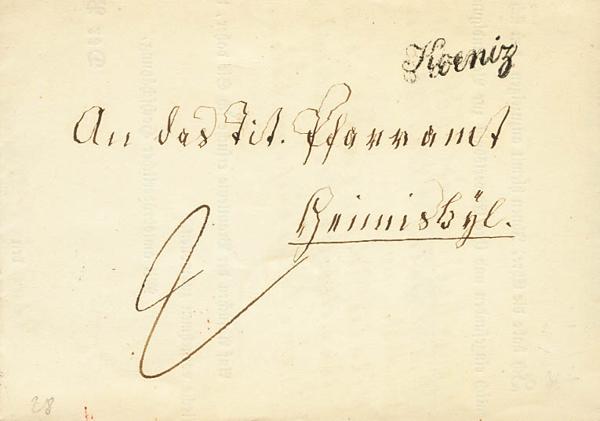 Koeniz
An das Tit. Pfarramt
Heimiswÿl.
28